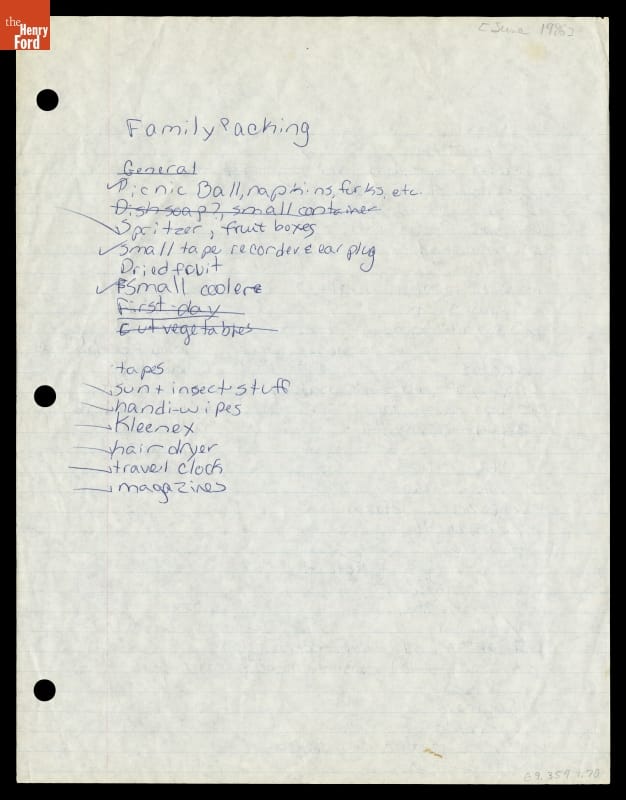 the
Henry
Ford
[June 1986]
Family Packing
General
Picnic Ball, napkins, forks, etc.
Dish soap?, small container
Spritzer, fruit boxes
Small tape recorder & ear plug
Dried fruit
Small cooler
First day
Cut vegetables
tapes
sun + insect stuff
handi-wipes
Kleenex
hair dryer
travel clock
magazines